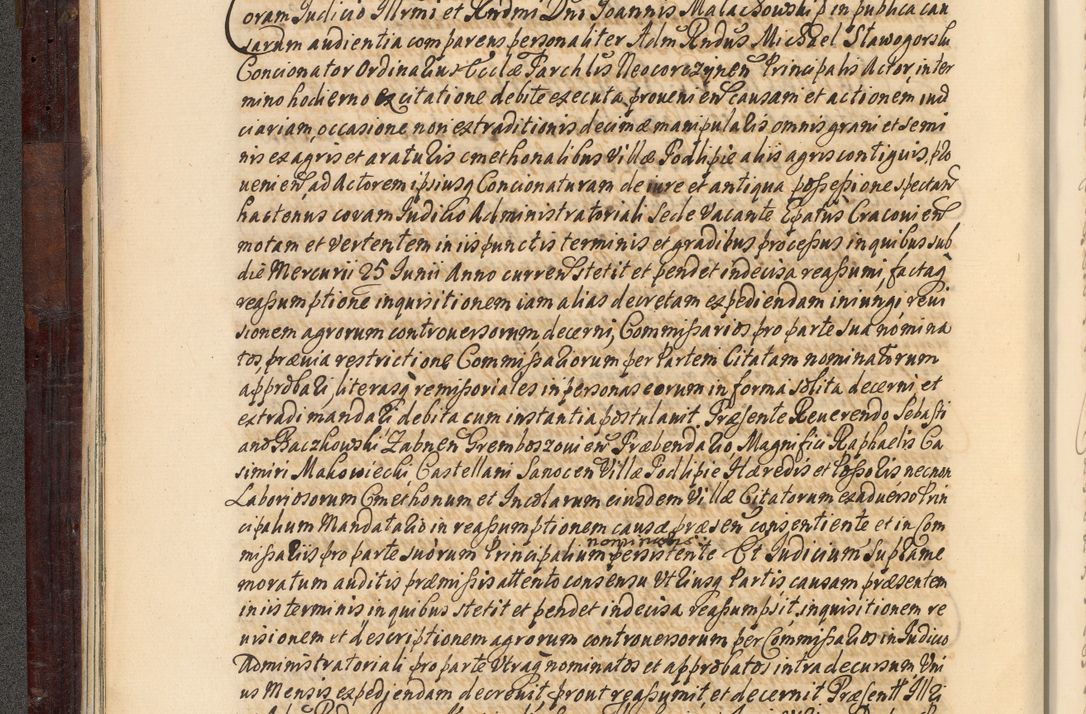 Coram Judicio Illrmi et Rndmi Dni Joannis Malachowski D in publica cau
sarum audientia comparens personaliter Adm Rndus Michael Stawogorski
Concionator Ordinarius Ecclæ Parchlis Neocorczynen Principalis Actor, in ter
mino hodierno ex citatione debite executa provenien causam et actionem iud
iciariam, occasione non extraditionis decimæ manipularis omnis grani et semi
nis ex agris et araturis cmethonalibus Villæ Podlipie aliis agris contiguis, pro
venien, ad Actorem ipsiusq Concionaturam de iure et antiqua possessione spectan
hactenus coram Judicio Administratoriali Sede Vacante Epatus Cracovien
motam et vertentem in iis punctis terminis et gradibus processus in quibus sub
die Mercurii 25 Junii Anno curren stetit et pendet indecisa reassumi, factaq
reassumptione inquisitionem iam alias decretam expediendam iniungi, revi
sionem agrorum controversorum decerni, Commissarios pro parte sua nomina
tos, prævia restrictione Commissariorum per Partem Citatam nominatorum
approbari, literasq remissoriales in personas eorum in forma solita decerni et
extradi mandari debita cum instantia postulavit. Præsente Reverendo Sebasti
ano Baczkowski Zabnen Gremboszovien Præbendario Magnifici Raphaelis Ca
simiri Makowiecki Castellani Sanocen Villæ Podlipie Hæredis et Possoris necnon
Laboriosorum Cmethonum et Incolarum eiusdem Villæ Citatorum ex adverso Prin
cipalium Mandatario in reassumptionem causæ præsen consentiente et in Com
missariis pro parte suorum Principalium nominatis persistente Et Judicium Suprame
moratum auditis præmissis attento consensu Utriusq Partis causam præsentem
in iis terminis in quibus stetit et pendet indecisa reassumpsit, inquisitionem re
visionem et descriptionem agrorum controversorum per Commissarios in Judicio
Administratoriali pro parte Utraq nominatos et approbatos intra decursum Uni
us Mensis expediendam decrevit, prout reassumit et decernit Præsentt Illi